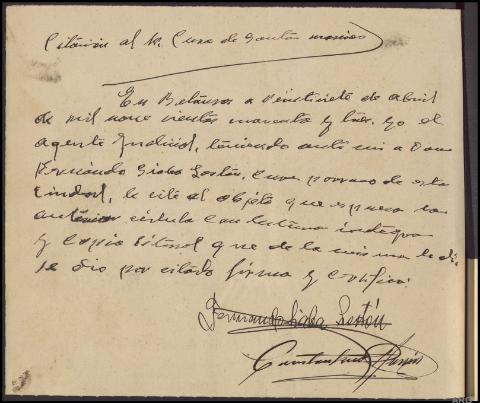 Citación al Sr. Cura de Santa
En Betanzos a veintisiete de abril
de mil nove cientos cuarenta y tres. yo el
agente Judicial, teniendo ante mi a Don
Fernando Siaba Lestón, Cura parroco de esta
Ciudad, le cité al objeto que espresa la
anterior cédula con lectura integra
y copia literal que de la misma le di,
se dio por citado firma y certifico.
Fernando Siaba Lestón
Constantino